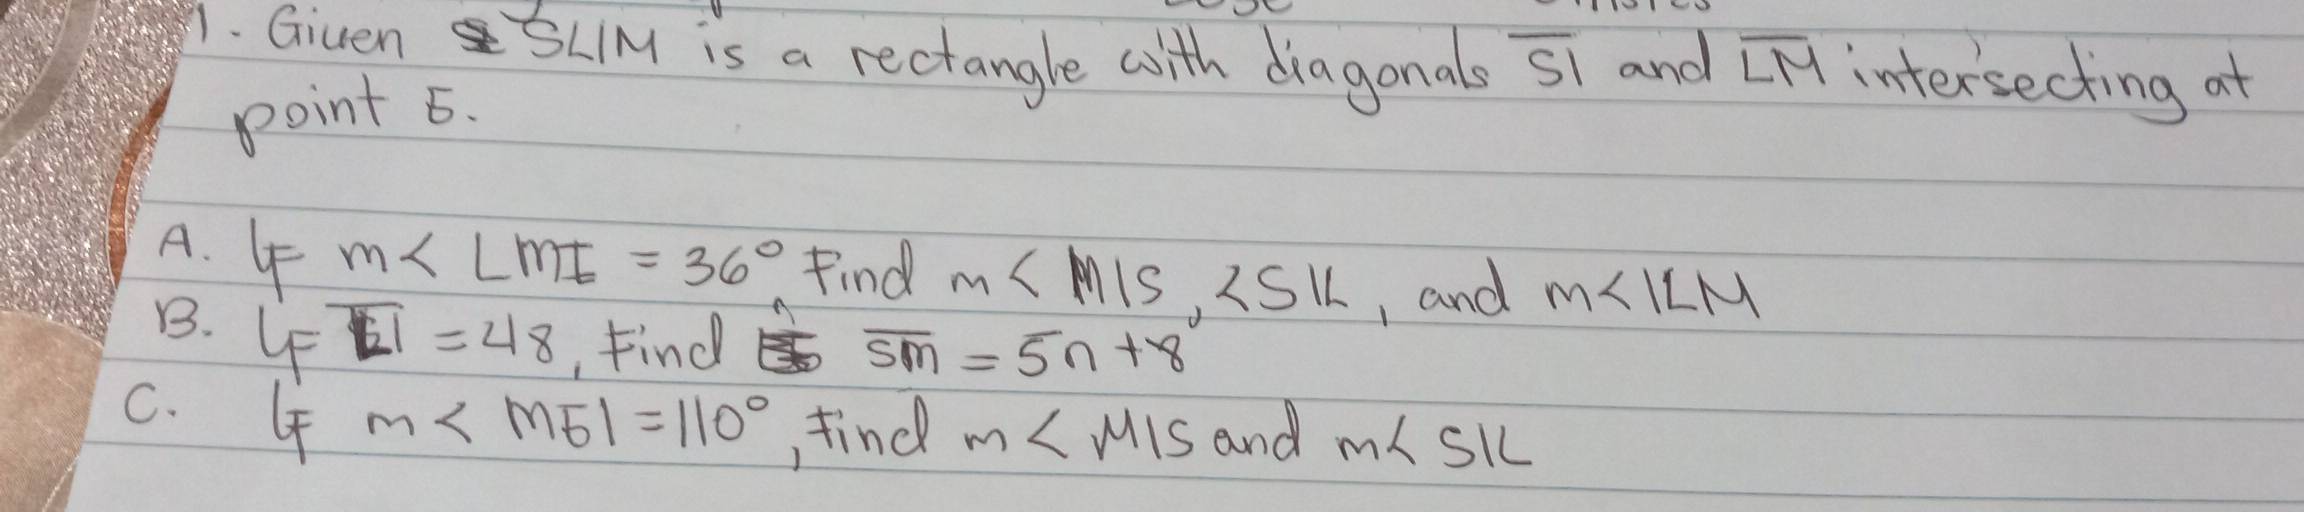 1. Given SLIM is a rectangle with diagonals SI and LM intersecting at
point E.
A. If m< LMI = 36° Find m< MIS, <SIL, and m<ILM
B. If EI = 48, Find SM = 5n+8
C. If m< MEI = 110°, find m< MIS and m< SIL